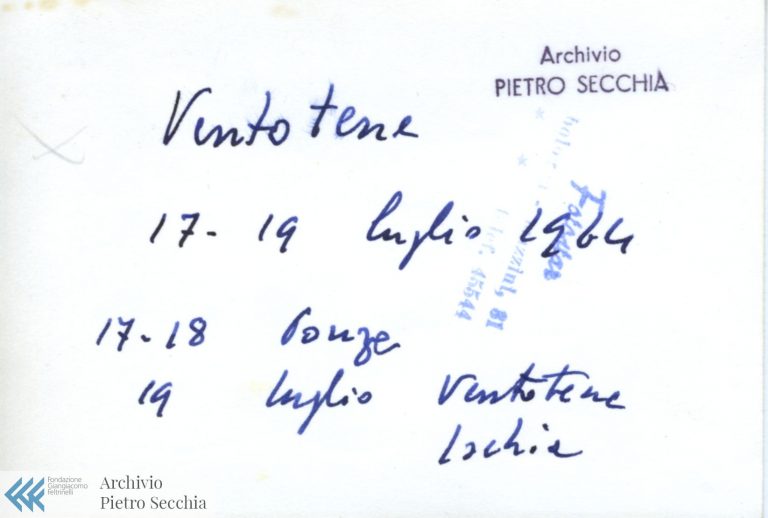 Archivio
PIETRO SECCHIA
Ventotene
17 - 19 luglio 1964
17 - 18 Ponza
19 luglio Ventotene
Ischia
81
Tel. 45544
Fondazione
Giangiacomo
Feltrinelli
Archivio
Pietro Secchia